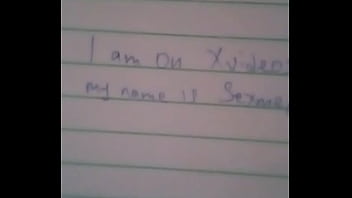 I am on Xvideo
my name is Sexme